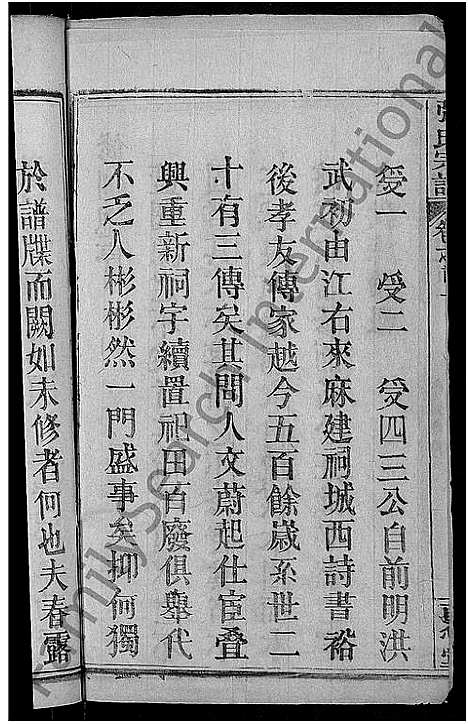 張氏宗譜 卷之首
受一 受二 受四三公自前明洪
武初由江右來麻建祠城西詩書裕
後孝友傳家越今五百餘歲系世二
十有三傳矣其間人文蔚起仕宦叠
興重新祠宇續置祀田百廢俱舉代
不乏人彬彬然一門盛事矣抑何獨
於譜牒而闕如未修者何也夫春露
FamilySearch International